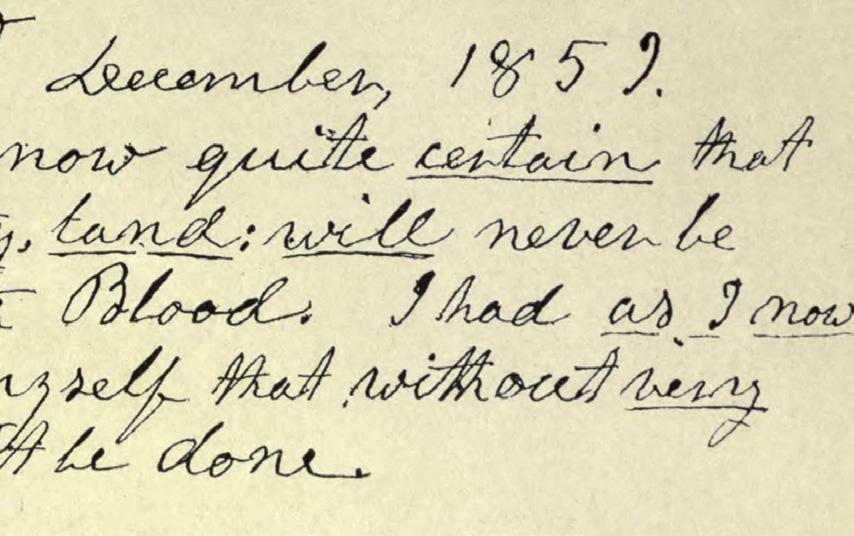 December, 1859.
now quite certain that
y, land: will never be
Blood. I had as I now
myself that without very
t be done.